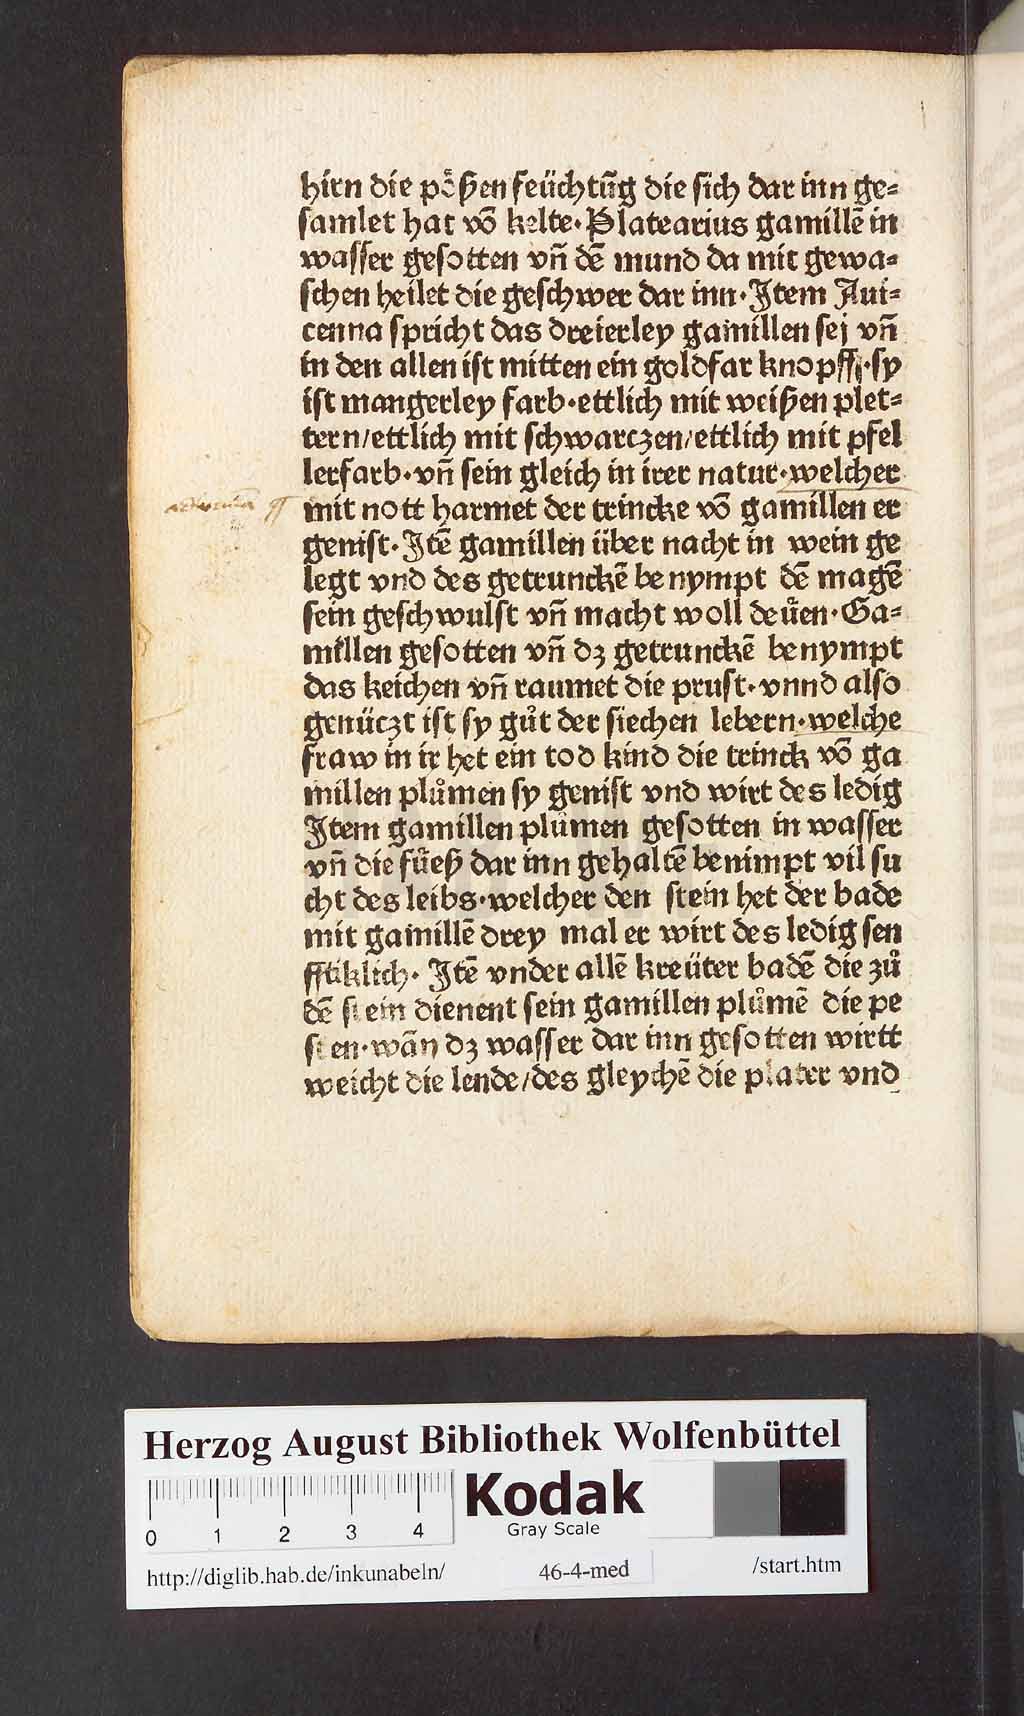 hirn die pößen feüchtūg die sich dar inn ge=
samlet hat vō kelte· Platearius gamillē in
wasser gesotten vn̄ dē mund da mit gewa=
schen heilet die geschwer dar inn· Item Aui=
cenna spricht das dreierley gamillen sej vn̄
in den allen ist mitten ein goldfar knopff·sy
ist mangerley farb·ettlich mit weißen plet=
tern/ettlich mit schwarczen/ettlich mit pfel
lerfarb·vn̄ sein gleich in irer natur·welcher
mit nott harmet der trincke vō gamillen er
genist· Itē gamillen über nacht in wein ge
legt vnd des getrunckē benympt dē magē
sein geschwulst vn̄ macht woll deuͤen· Ga=
millen gesotten vn̄ dz getrunckē benympt
das keichen vn̄ raumet die prust· vnnd also
genüczt ist sy gůt der siechen lebern·welche
fraw in ir het ein tod kind die trinck vō ga
millen plůmen sy genist vnd wirt des ledig
Item gamillen plůmen gesotten in wasser
vn̄ die fuͤeß dar inn gehaltē benimpt vil su
cht des leibs·welcher den stein het der bade
mit gamillē drey mal er wirt des ledig sen
fftiklich· Itē vnder allē kreüter badē die zů
dē stein dienent sein gamillen plůmē die pe
sten·wān dz wasser dar inn gesotten wirtt
weicht die lende/des gleychē die plater vnd
Herzog August Bibliothek Wolfenbüttel
0 1 2 3 4
Kodak
Gray Scale
http://diglib.hab.de/inkunabeln/ 46-4-med /start.htm